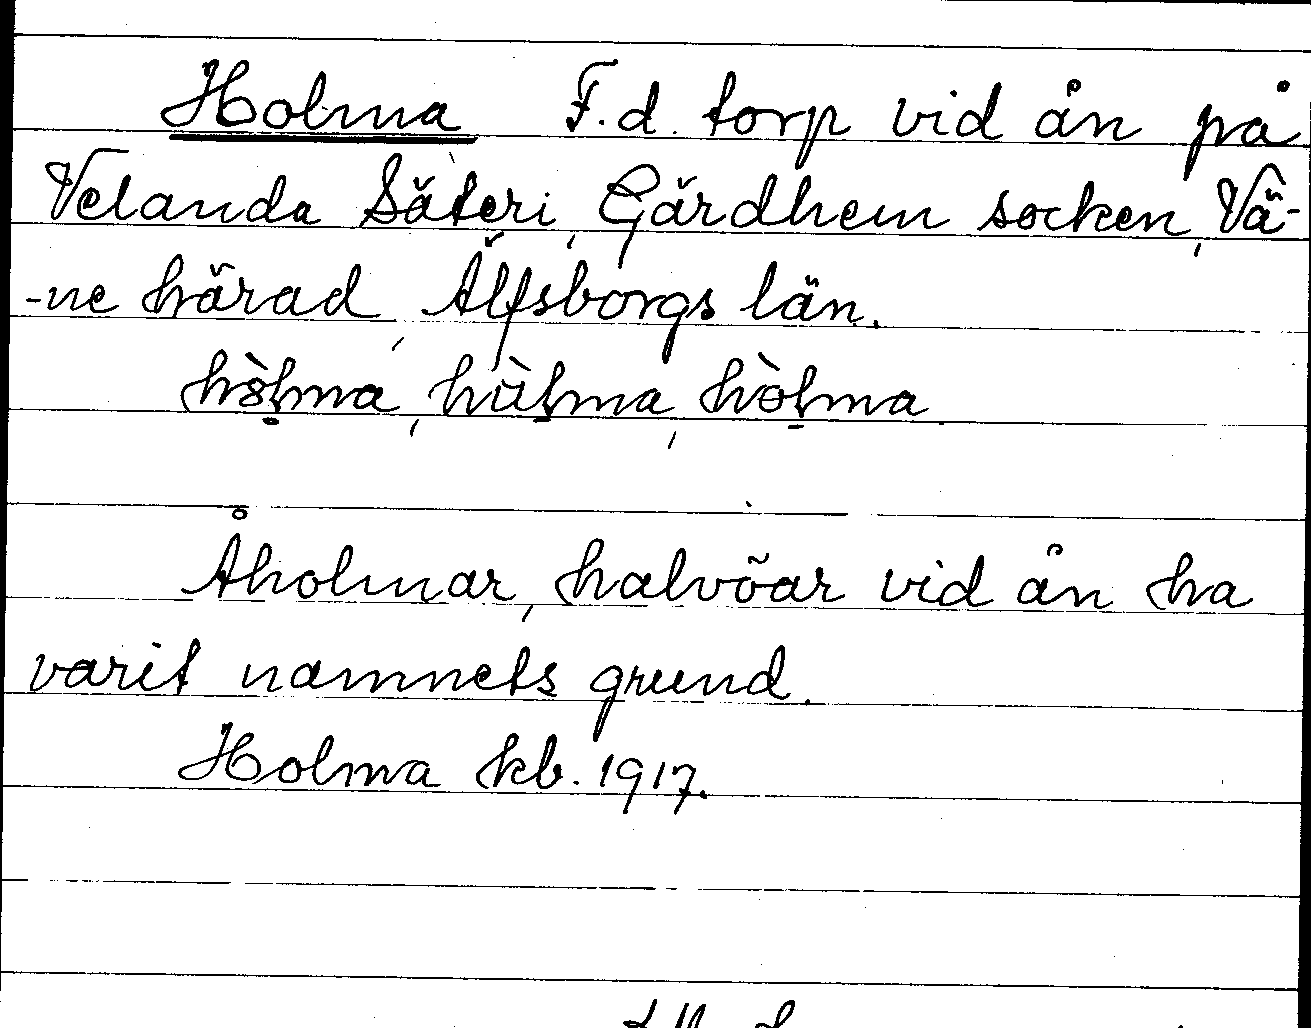 Holma F.d. torp vid ån på
Velanda Säteri, Gärdhem socken, Vä-
-ne härad, Älfsborgs län.
hòḷma, hùḷma, hòḷma
Åholmar, halvöar vid ån ha
varit namnets grund.
Holma kb. 1917.